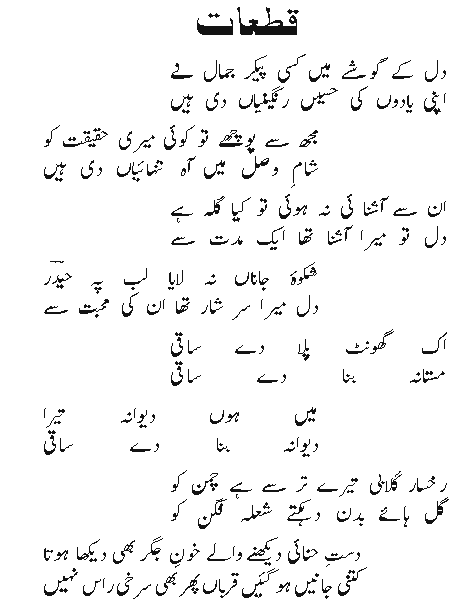 قطعات
دل کے گوشے میں کسی پیکر جمال نے
اپنی یادوں کی حسیں رنگینیاں دی ہیں
مجھ سے پوچھے تو کوئی میری حقیقت کو
شامِ وصل میں آہ تنہائیاں دی ہیں
ان سے آشنائی نہ ہوئی تو کیا گلہ ہے
دل تو میرا آشنا تھا ایک مدت سے
شکوۂ جاناں نہ لایا لب پہ حیدؔر
دل میرا سرشار تھا ان کی محبت سے
اک گھونٹ پلا دے ساقی
مستانہ بنا دے ساقی
میں ہوں دیوانہ تیرا
دیوانہ بنا دے ساقی
رخسار گلابی تیرے تر سے ہے چمن کو
گل ہائے بدن دہکتے شعلہ فگن کو
دستِ حنائی دیکھنے والے خونِ جگر بھی دیکھا ہوتا
کتنی جانیں ہو گئیں قرباں پھر بھی سرخی راس نہیں